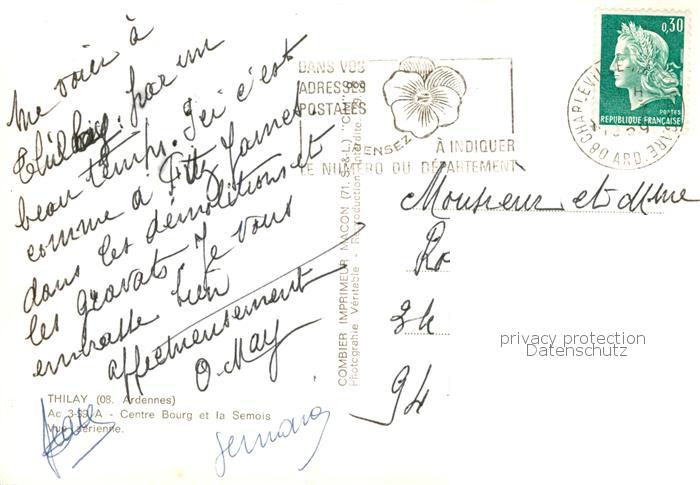 me voici à
Thilay par un
beau temps. Ici c'est
comme à Fitz James
dans les démolitions et
les gravats. Je vous
embrasse bien
affectueusement
O May
THILAY (08. Ardennes)
Ac 3-99 A - Centre Bourg et la Semois
Vue aérienne.
COMBIER IMPRIMEUR MACON (71. S.&L.) "CIM"
Photographie Véritable - Reproduction interdite.
DANS VOS
ADRESSES
POSTALES
PENSEZ
À INDIQUER
LE NUMÉRO DU DÉPARTEMENT
08 CHARLEVILLE GARE
ARD.
0,30
POSTES
REPUBLIQUE FRANÇAISE
Monsieur et Mme
Ro
24
94
privacy protection
Datenschutz